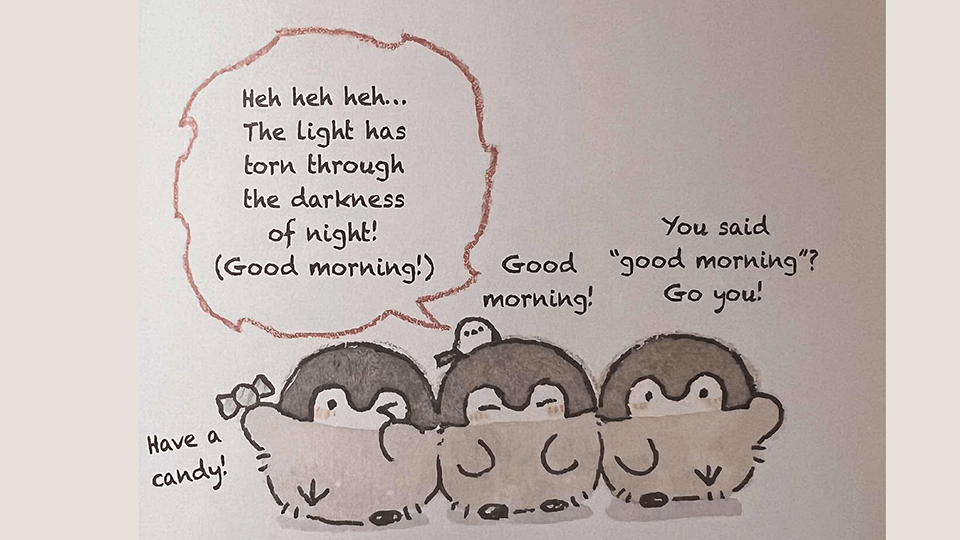 Heh heh heh...
The light has
torn through
the darkness
of night!
(Good morning!)
Good
morning!
You said
"good morning"?
Go you!
Have a
candy!